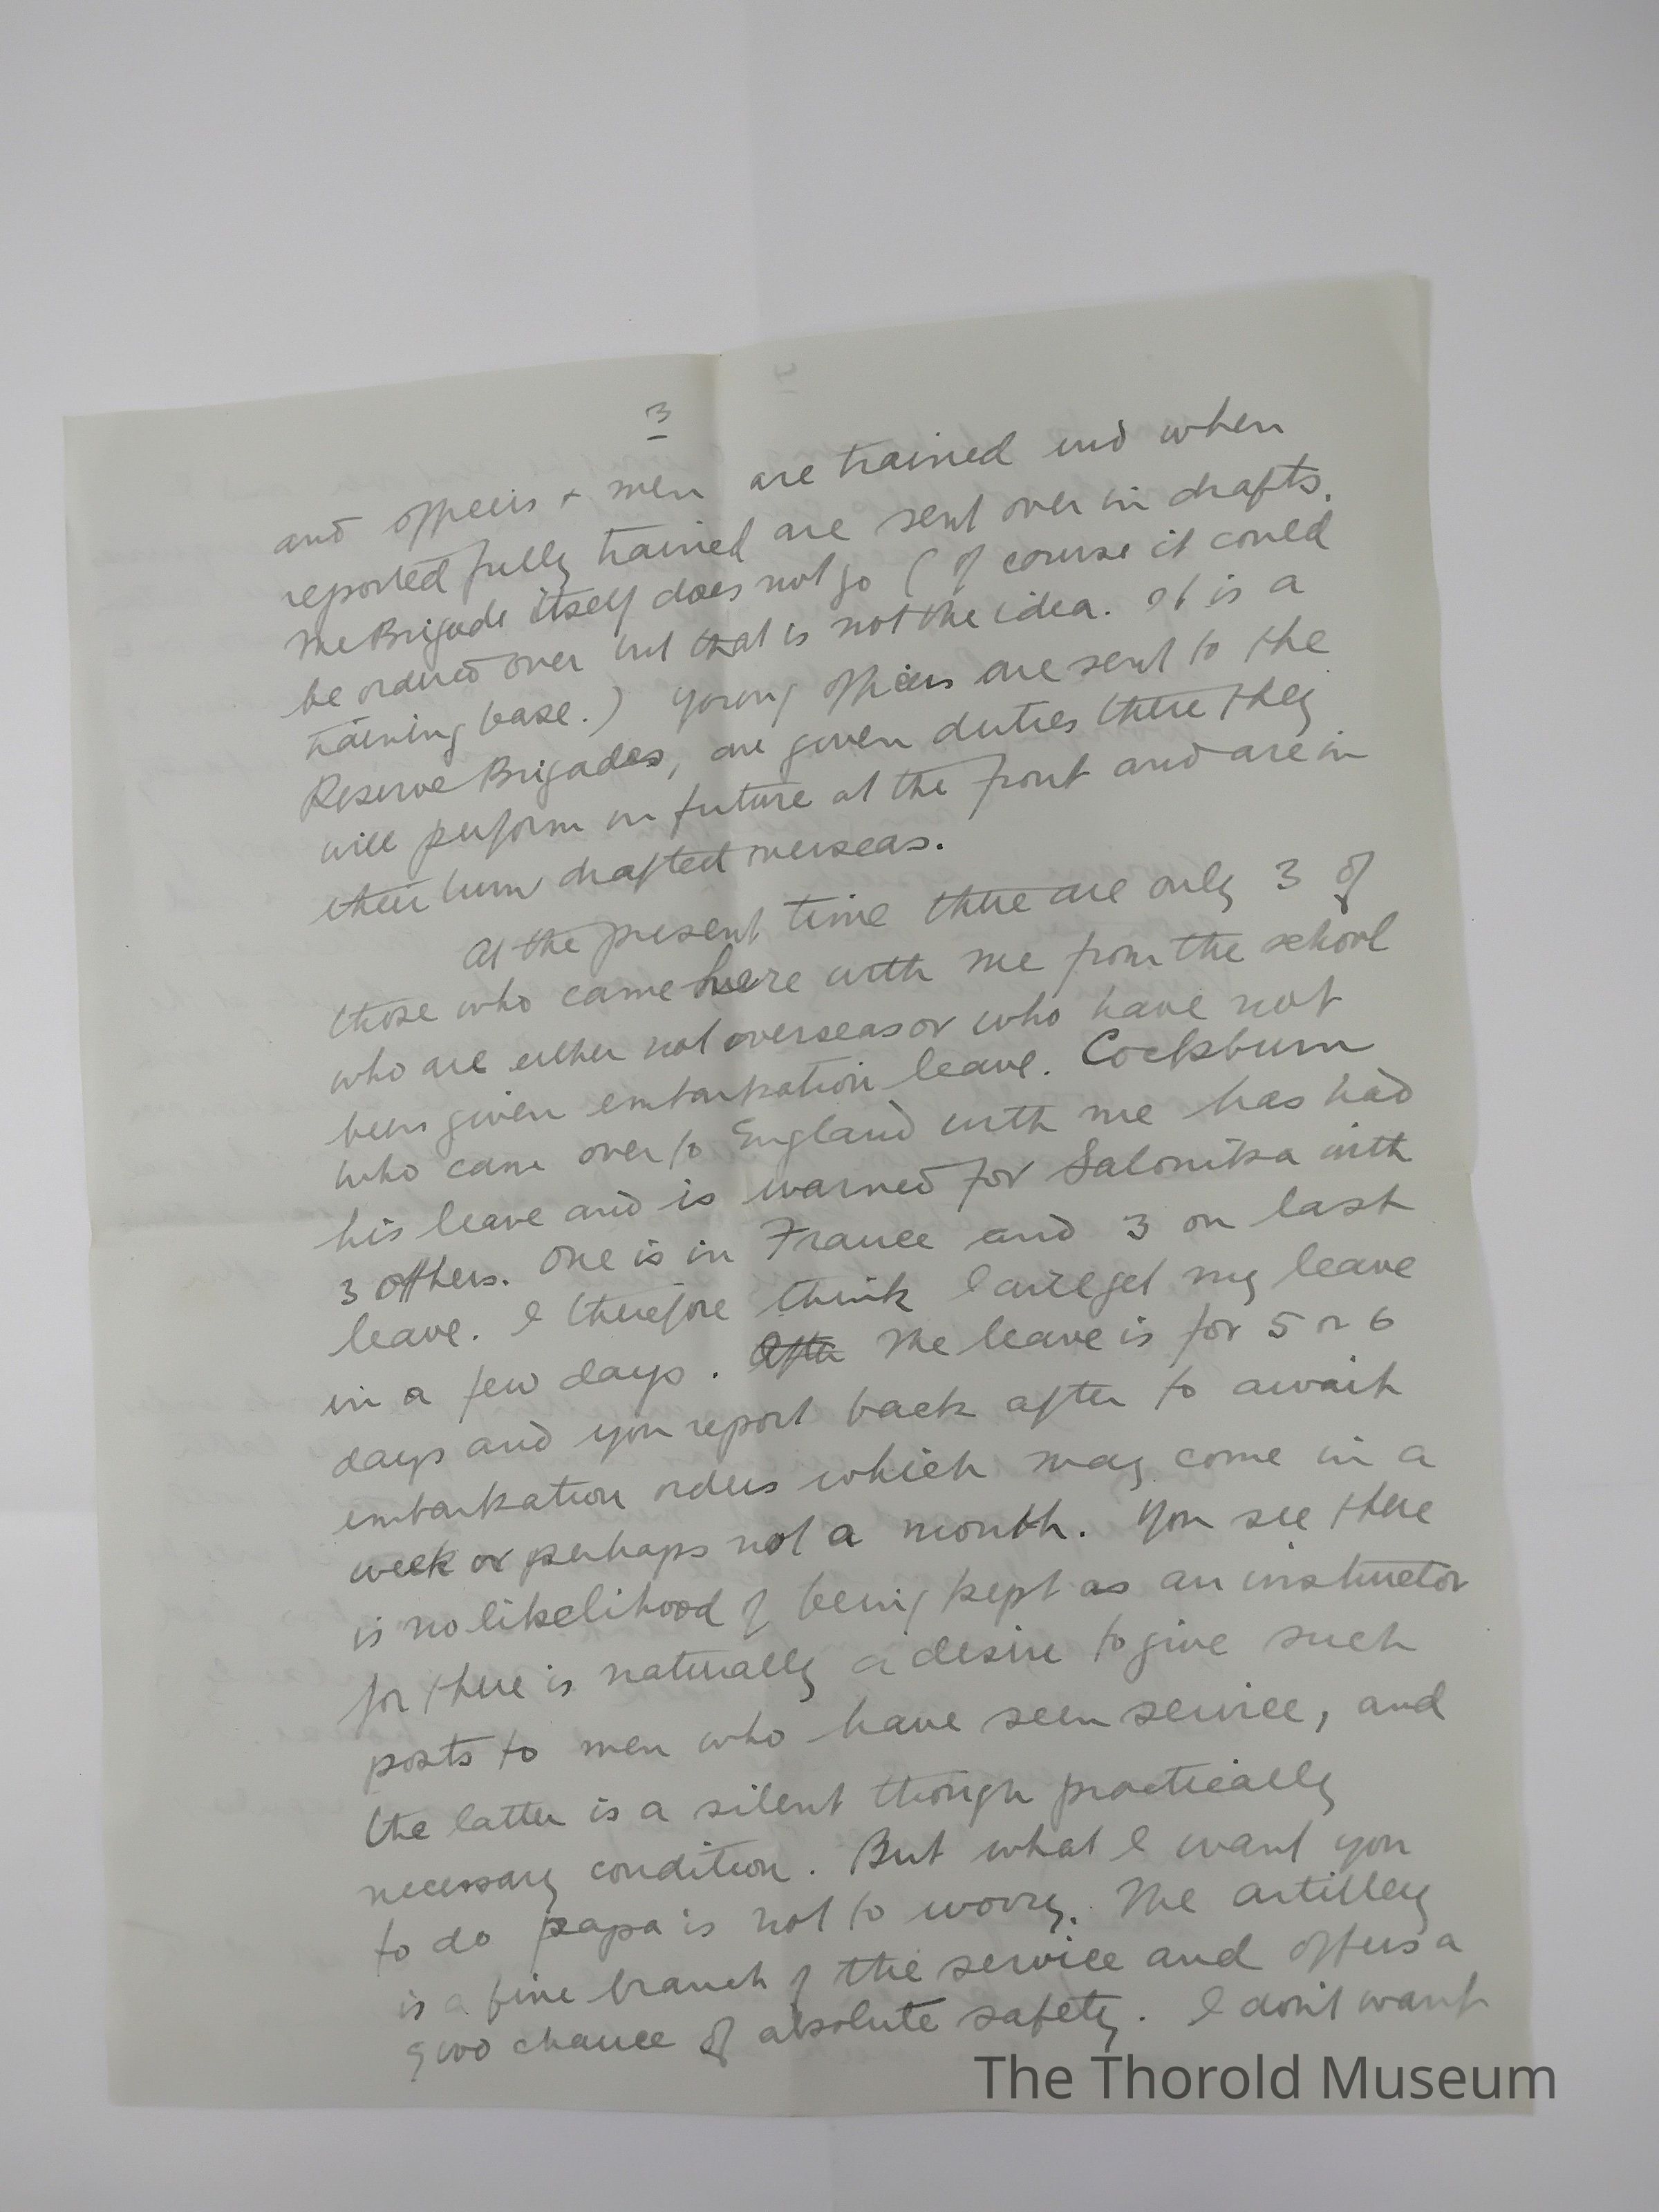 3
and officers + men are trained and when
reported fully trained are sent over in drafts.
The Brigade itself does not go (of course it could
be ordered over but that is not the idea. It is a
training base.) Young officers are sent to the
Reserve Brigades, are given duties there they
will perform in future at the front and are in
their turn drafted overseas.
At the present time there are only 3 of
those who came here with me from the school
who are either not overseas or who have not
been given embarkation leave. Cockburn
who came over to England with me has had
his leave and is warned for Salonika with
3 others. One is in France and 3 on last
leave. I therefore think I will get my leave
in a few days. After The leave is for 5 or 6
days and you report back after to await
embarkation orders which may come in a
week or perhaps not a month. You see there
is no likelihood of being kept as an instructor
for there is naturally a desire to give such
posts to men who have seen service, and
the latter is a silent though practically
necessary condition. But what I want you
to do papa is not to worry. The artillery
is a fine branch of the service and offers a
good chance of absolute safety. I don't want
The Thorold Museum